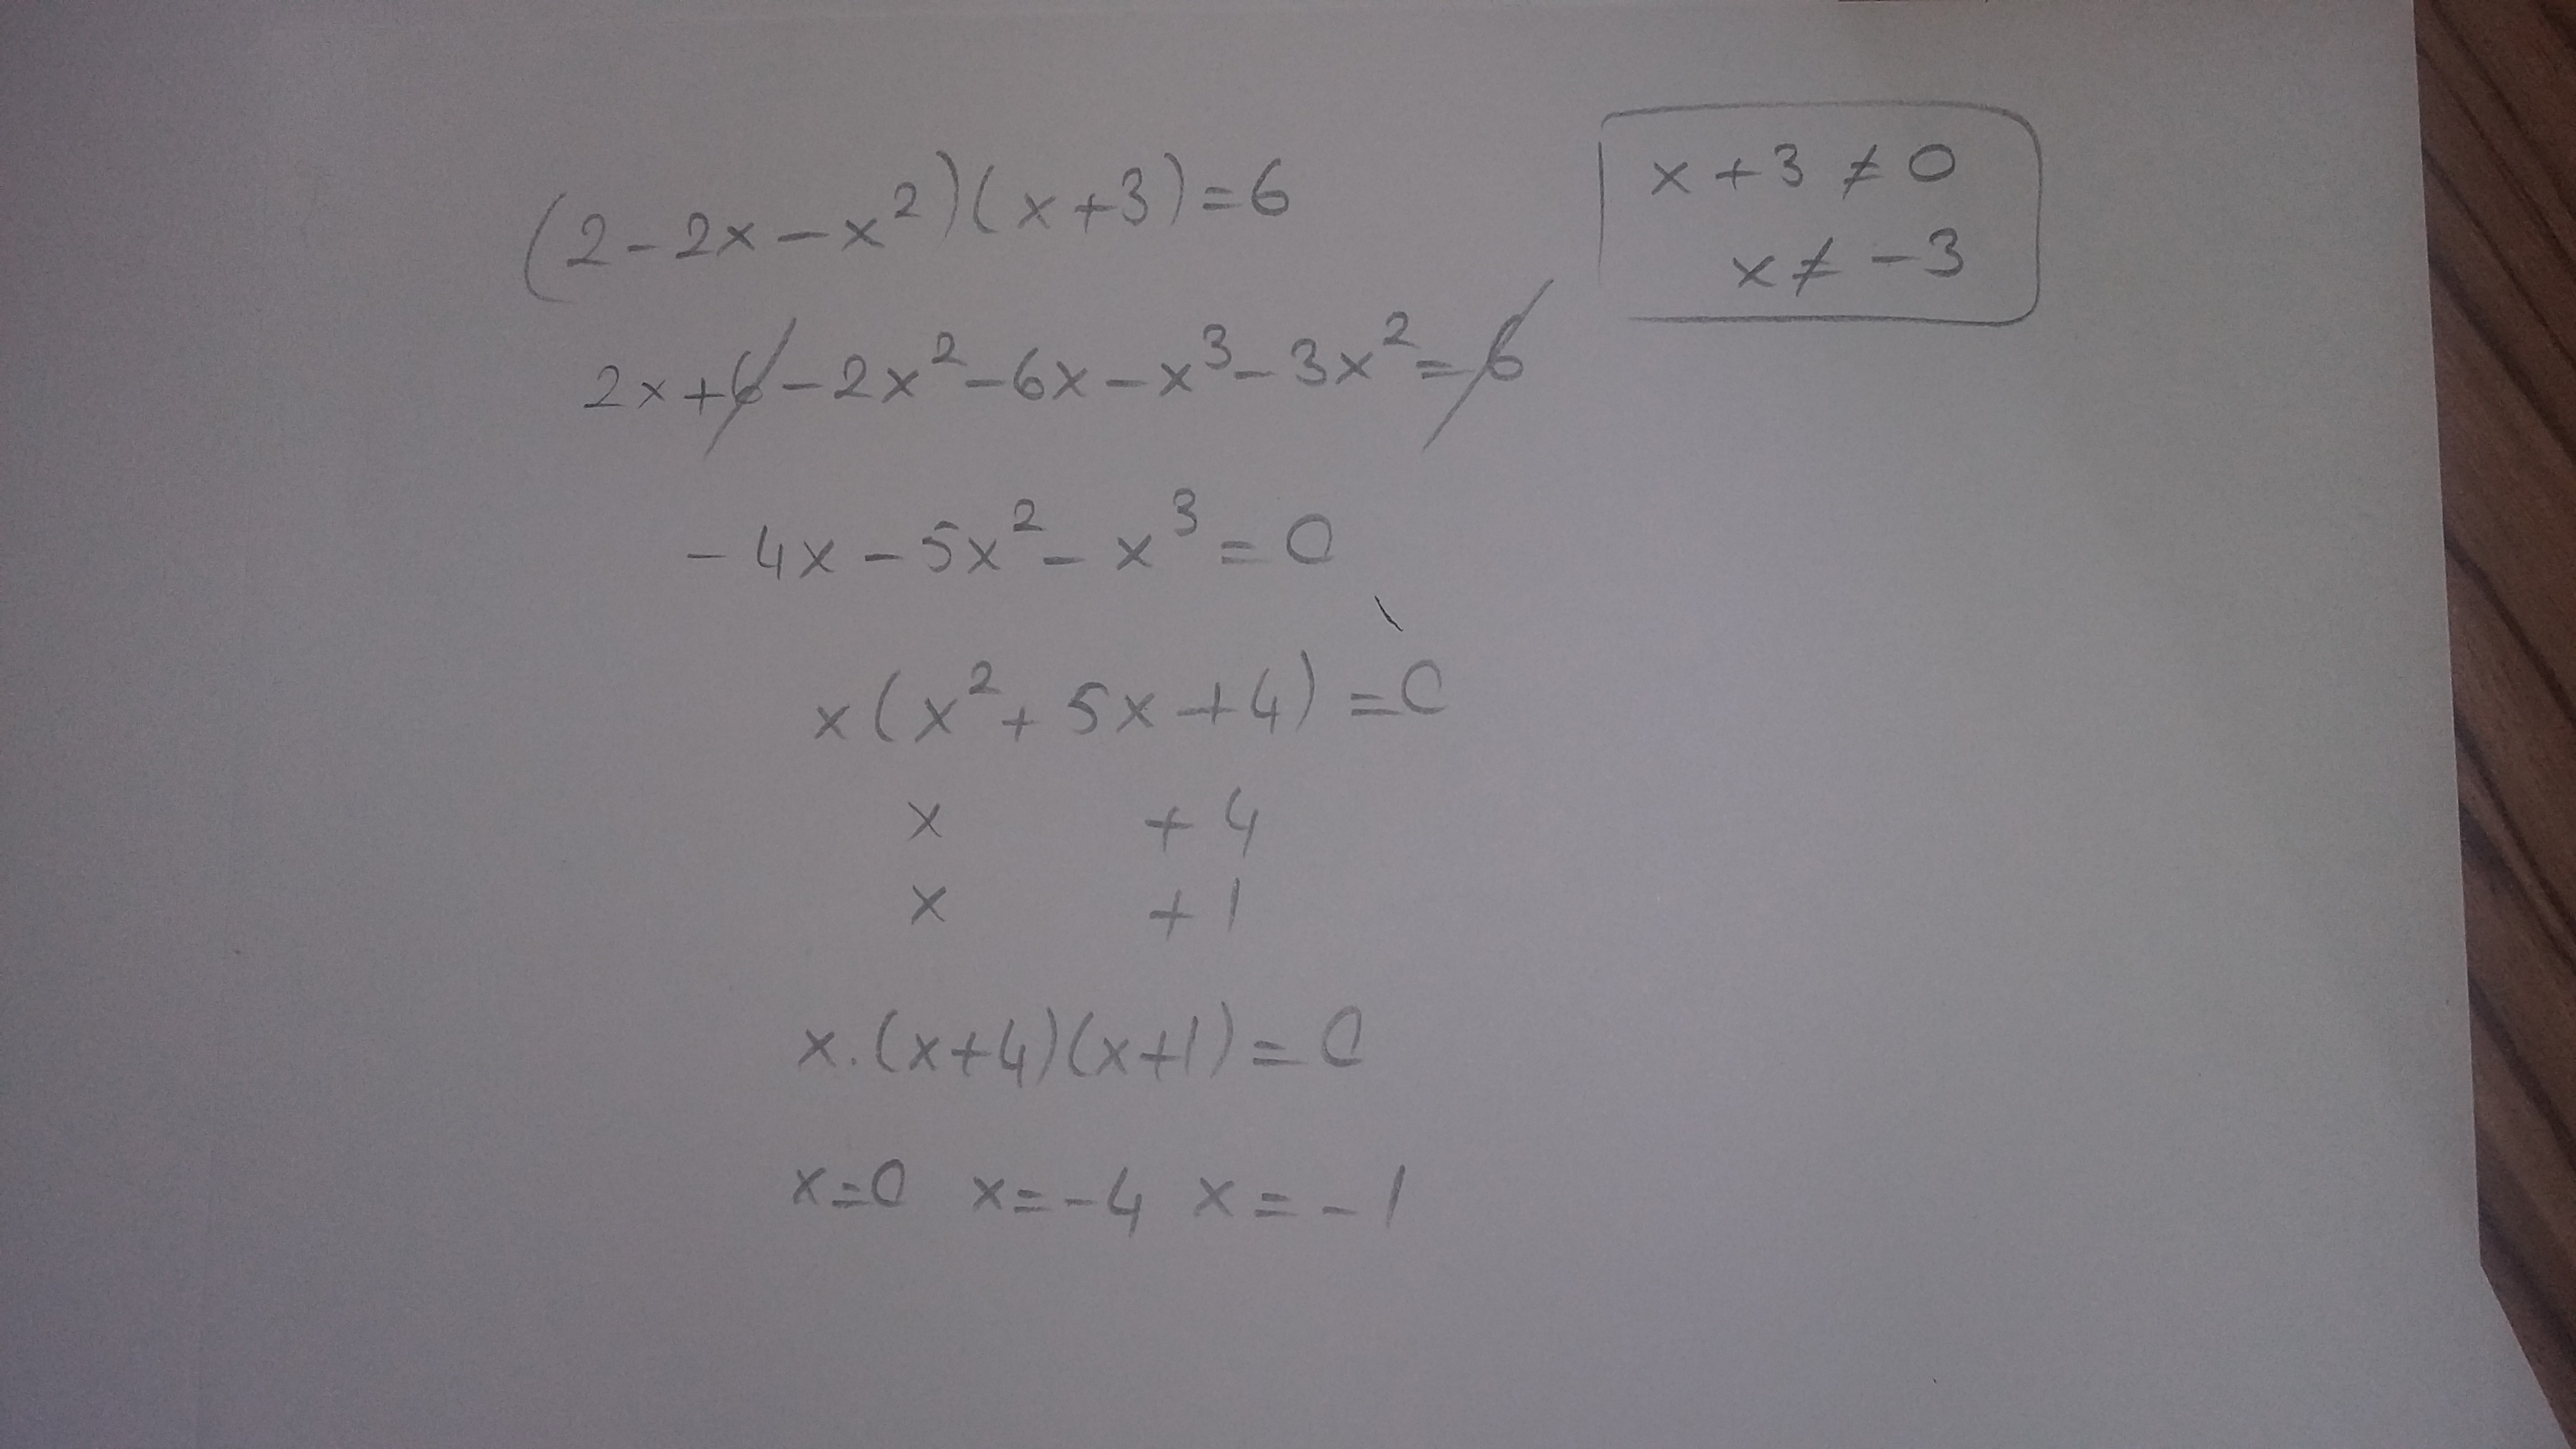 (2-2x-x²)(x+3)=6
x+3≠0
x≠-3
2x+6-2x²-6x-x³-3x²=6
-4x-5x²-x³=0
x(x²+5x+4)=0
x +4
x +1
x.(x+4)(x+1)=0
x=0 x=-4 x=-1